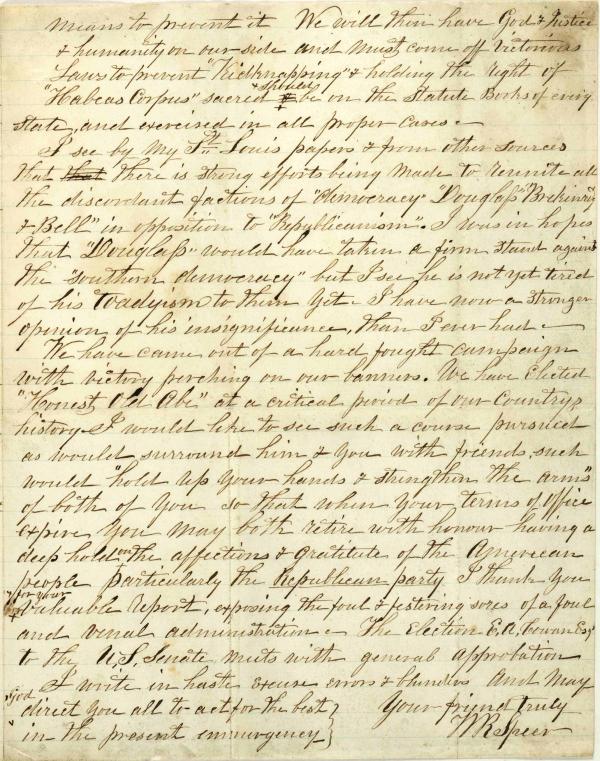 means to prevent it We will then have God & Justice
& humanity on our side and must come off Victorious
Laws to prevent "Kidknapping" & holding the right of
"Habeas Corpus" sacred & should be on the Statute Books of every
state, and exercised in all proper cases -
I see by my St. Louis papers & from other sources
that that there is strong efforts being made to reunite all
the discordant factions of "democracy" "Douglass" Brekinrig
& Bell" in opposition to "Republicanism". I was in hopes
that "Douglass" would have taken a firm stand against
the "southern democracy" but I see he is not yet tired
of his Toadyism to them yet - I have now a stronger
opinion of his insignificance, than I ever had -
We have came out of a hard fought campaign
with victory perching on our banners. We have Elected
"Honest Old Abe" at a critical period of our Countrys
history - I would like to see such a course pursued
as would surround him & you with friends, such
would "hold up your hands & strengthen the arms"
of both of you so that when your terms of office
expire you may both retire with honour having a
deep hold on the affections & gratitude of the American
people particularly the Republican party I thank you
for your
valuable report, exposing the foul & festering sores of a foul
and venal administration - The Election E. A. Cowan Esqr
to the U.S. Senate meets with general approbation
I write in haste excuse errors & blunders And may
God
direct you all to act for the best } Your friend truly
in the present emmurgency } W R Speer